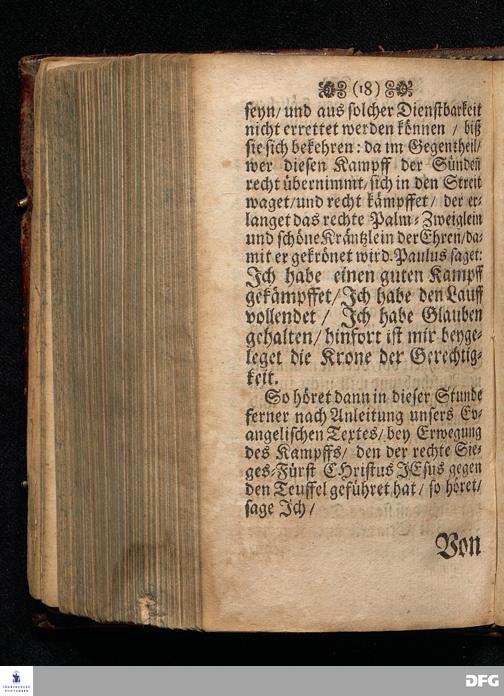 (18)
seyn/ und aus solcher Dienstbarkeit
nicht errettet werden können / biß
sie sich bekehren: da im Gegentheil/
wer diesen Kampff der Sünden
recht übernimmt/ sich in den Streit
waget/ und recht kämpffet/ der er-
langet das rechte Palm-Zweiglein
und schöne Kräntzlein der Ehren/ da-
mit er gekrönet wird. Paulus saget:
Ich habe einen guten Kampff
gekämpffet/ Ich habe den Lauff
vollendet / Ich habe Glauben
gehalten/ hinfort ist mir beyge-
leget die Krone der Gerechtig-
keit.
So höret dann in dieser Stunde
ferner nach Anleitung unsers Ev-
angelischen Textes/ bey Erwegung
des Kampffs/ den der rechte Sie-
ges-Fürst CHristus JEsus gegen
den Teuffel geführet hat/ so höret/
sage Ich/
Von
FRANCKESCHE
STIFTUNGEN
DFG